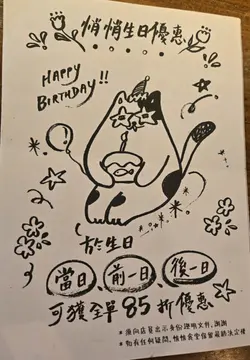 悄悄生日優惠
HAPPY
BIRTHDAY!!
於生日
當日、前一日、後一日
可獲全單85折優惠
* 須向店員出示身份證明文件，謝謝
* 如有任何疑問，悄悄食堂保留最終決定權